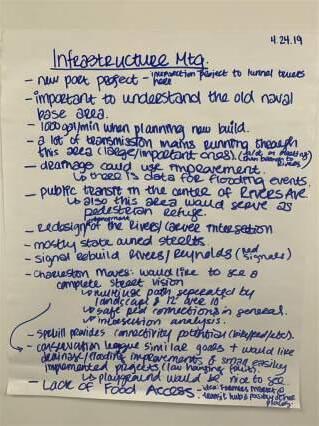 4.24.19
Infrastructure Mtg.
- new port project - intersection project to tunnel trucks
here
- important to understand the old naval
base area.
- 1000 gal/min when planning new build.
- a lot of transmission mains running through
this area (large/important ones).
- drainage could use improvement.
↳ there is data for flooding events.
- public transit in the center of Rivers Ave
↳ also this area would serve as
pedestrian refuge.
- redesign of the Rivers/ intersection
- mostly state owned streets.
- signal rebuild Rivers/Reynolds (red signals)
- Charleston Moves: would like to see a
complete street vision
↳ multiuse path seperated by
landscape 12'
↳ safe ped connections in general.
↳ intersection analysis.
- spruill provides connectivity potential (bike/ped/etc).
- conservation league similar goals + would like
drainage/flooding improvements & small easiley
implemented projects (low hanging fruit).
↳ playground would be nice to see.
- Lack of Food Access. Farmers Market @
transit hub &
places.